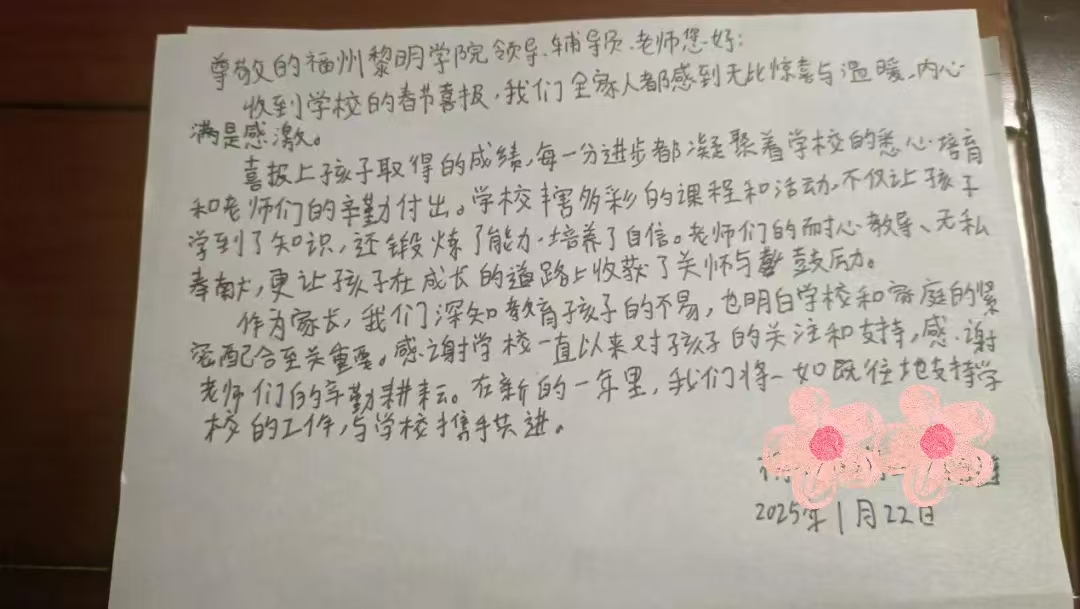 尊敬的福州黎明学院领导、辅导员、老师您好：
收到学校的春节喜报，我们全家人都感到无比惊喜与温暖、内心
满是感激。
喜报上孩子取得的成绩，每一分进步都凝聚着学校的悉心培育
和老师们的辛勤付出。学校丰富多彩的课程和活动，不仅让孩子
学到了知识，还锻炼了能力、培养了自信。老师们的耐心教导、无私
奉献，更让孩子在成长的道路上收获了关师与鼓励。
作为家长，我们深知教育孩子的不易，也明白学校和家庭的紧
密配合至关重要。感谢学校一直以来对孩子的关注和支持，感谢
老师们的辛勤耕耘。在新的一年里，我们将一如既往地支持学
校的工作，与学校携手共进。
2025年1月22日